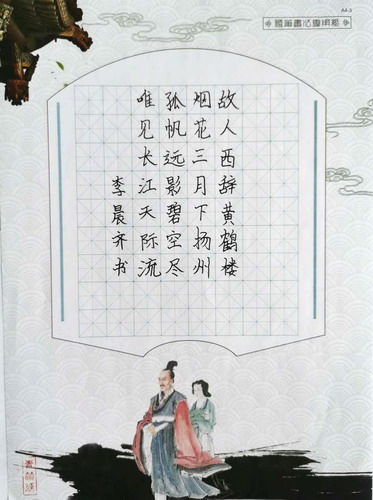 故人西辞黄鹤楼
烟花三月下扬州
孤帆远影碧空尽
唯见长江天际流
李晨齐书
A4-3